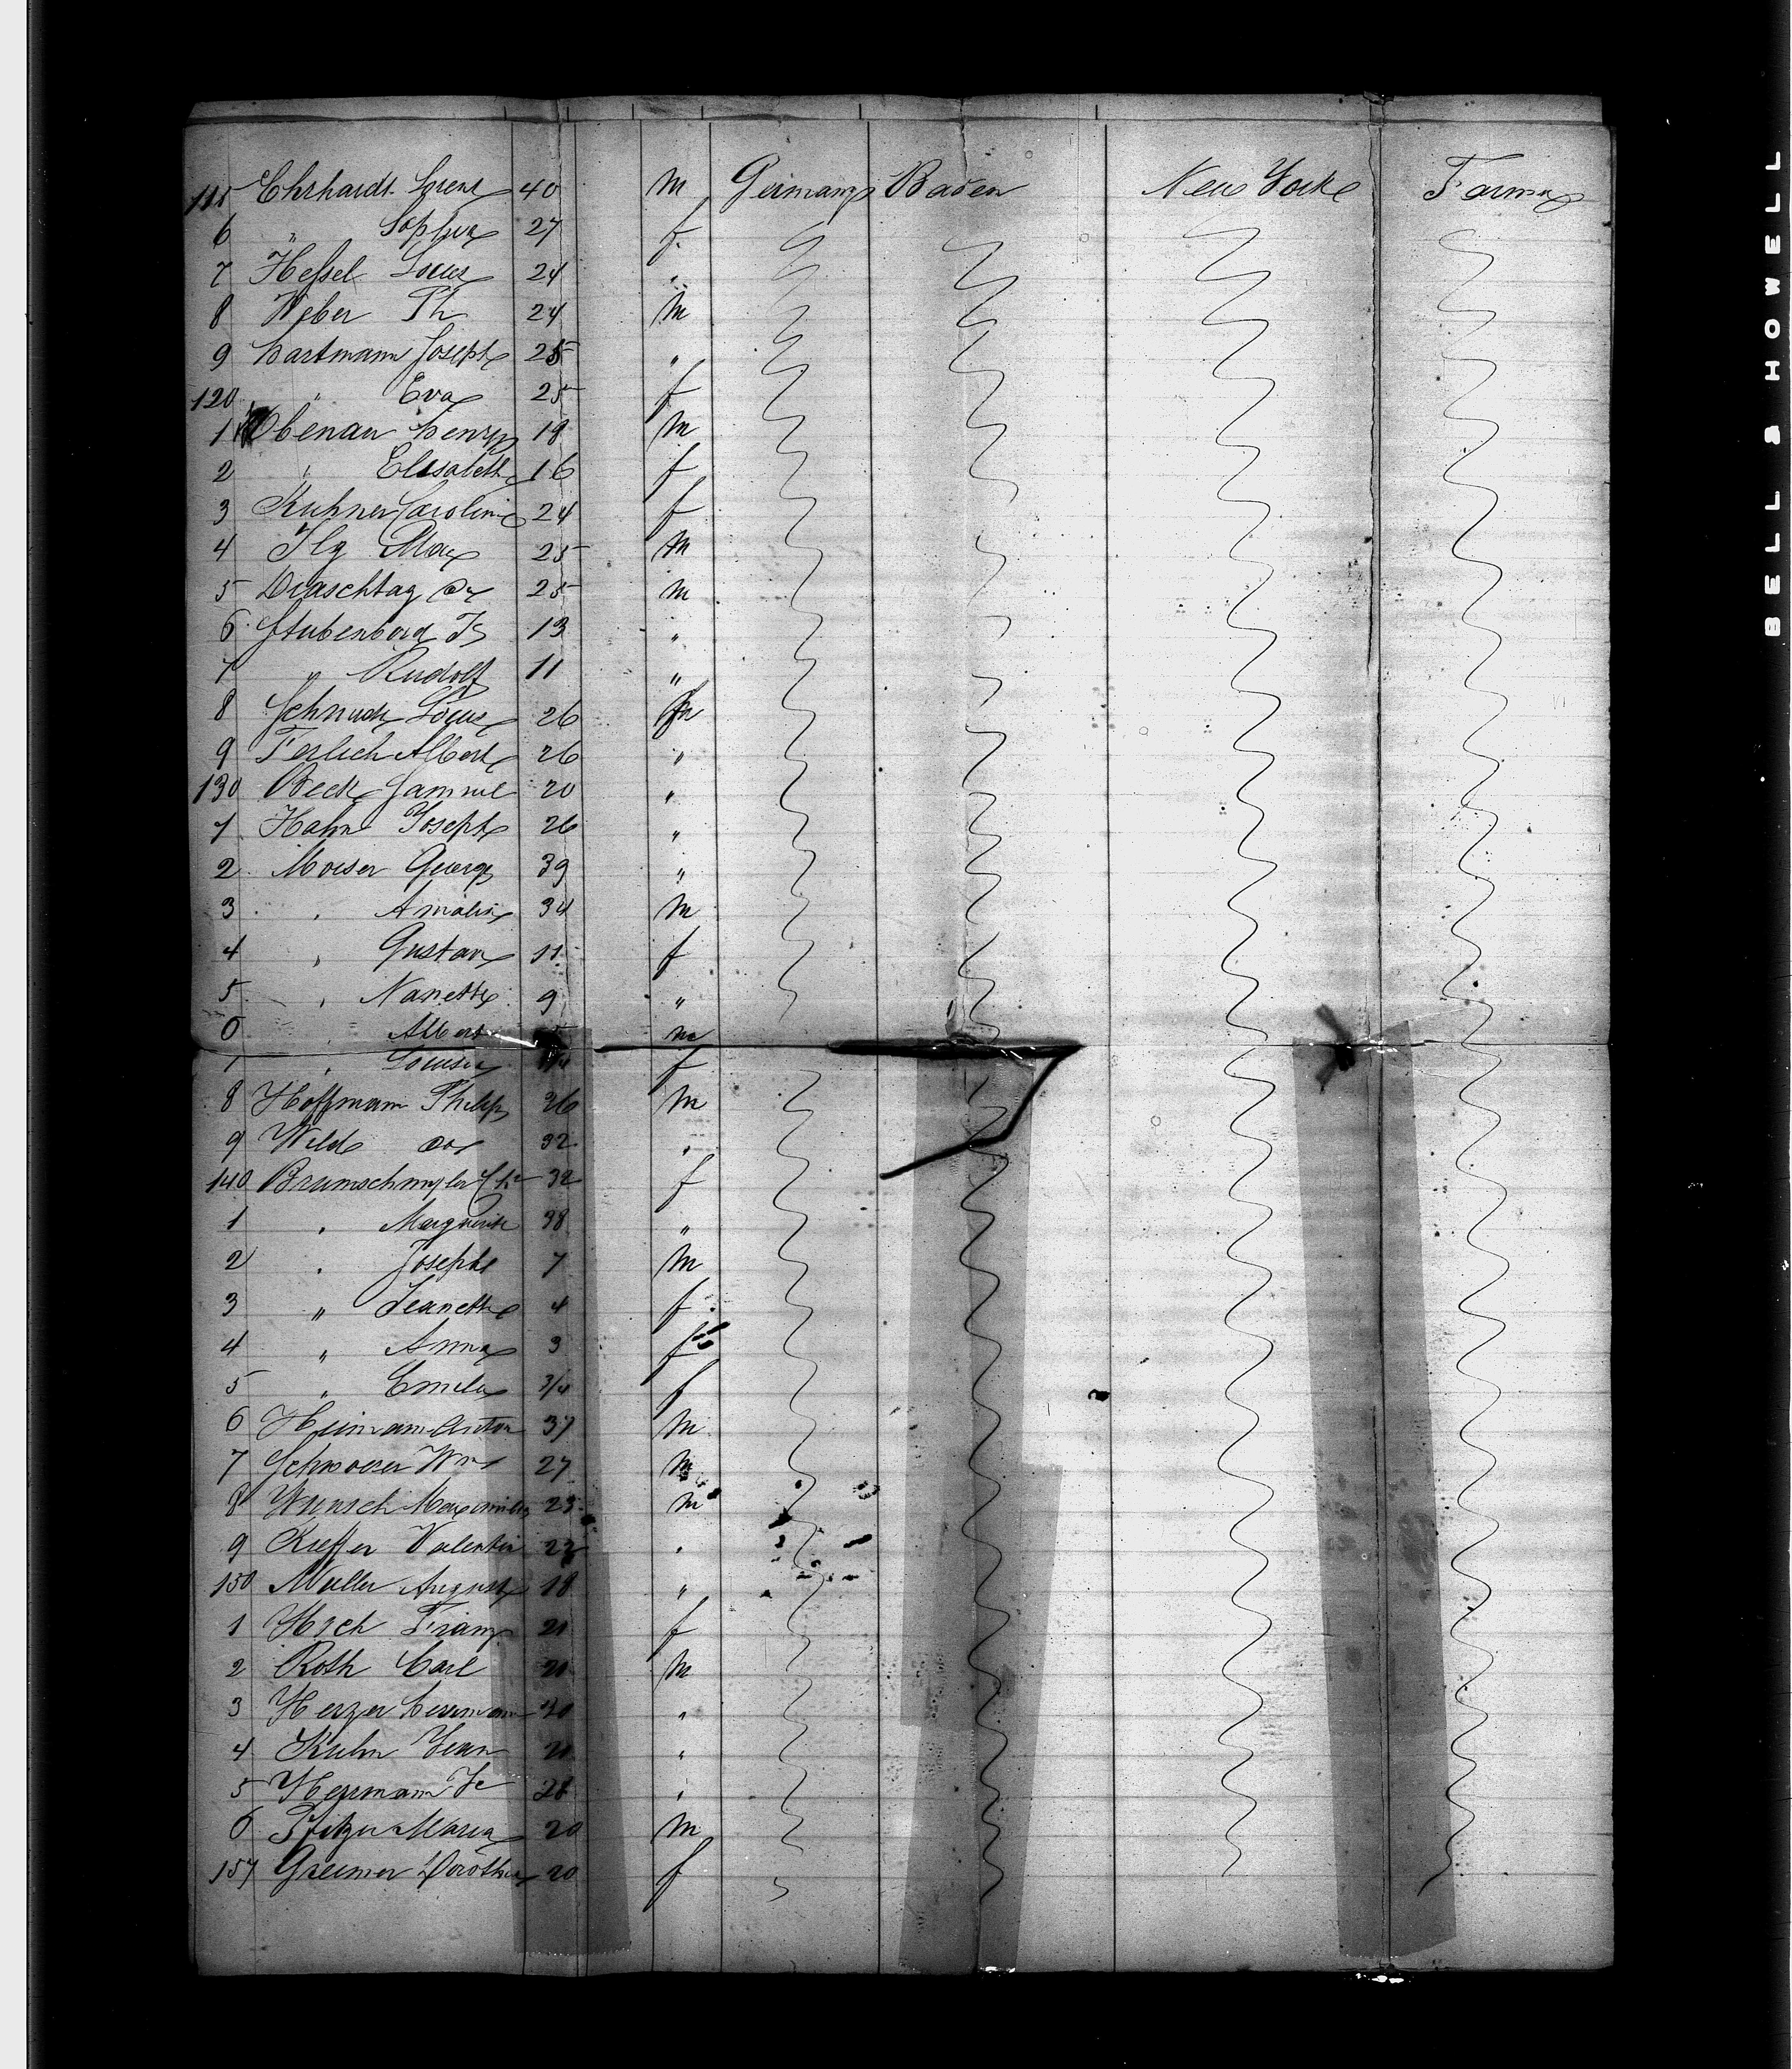 115 Ehrhardt Lorenz 40 m Germany Baden New York Farmer
6 " Sophia 27 f
7 Hessel Louis 24 "
8 Weber Ph 24 m
9 Hartmann Joseph 25 "
120 " Eva 25 f
1 Obenau Henry 18 m
2 " Elisabeth 16 f
3 Kuhner Caroline 24 f
4 Ilg Max 25 m
5 25 m
6 Stubenbord 13 "
7 " Rudolf 11 "
8 Louis 26
9 Ferlich Albert 26 "
130 Beck Samuel 20 "
1 Hahn Joseph 26 "
2 Moeser George 39 "
3 " Amalia 34 m
4 " Gustav 11 f
5 " Nanette 9 "
6 " Albert m
1 " Louisa f
8 Hoffmann Philip 26 m
9 Wild 32 "
140 32 f
1 " Marguerite 38 "
2 " Joseph 7 m
3 " Jeanette 4 f
4 " Anna 3 f
5 " Emilie 3/4 f
6 Anton 37 m
7 Wm 27 m
8 Wunsch Maximilian 25 m
9 Kieffer Valentin "
150 Muller August 18 "
1 Franz 21 f
2 Roth Carl m
3 Herzer Herrmann "
4 Kuhn Jean "
5 Herrmann 28 "
6 Maria 20 m
157 Greimer Dorothea 20 f
BELL & HOWELL